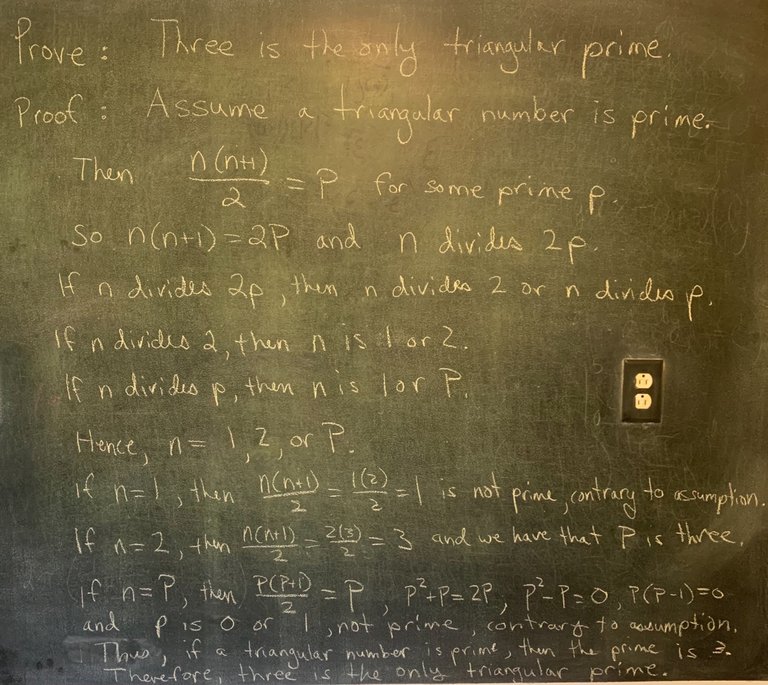 Prove : Three is the only triangular prime.
Proof : Assume a triangular number is prime.
Then n(n+1)/2 = P for some prime p.
So n(n+1) = 2P and n divides 2p.
If n divides 2p, then n divides 2 or n divides p.
If n divides 2, then n is 1 or 2.
If n divides p, then n is 1 or P.
Hence, n = 1, 2, or P.
if n=1, then n(n+1)/2 = 1(2)/2 = 1 is not prime, contrary to assumption.
If n=2, then n(n+1)/2 = 2(3)/2 = 3 and we have that P is three.
if n=P, then P(P+1)/2 = P, P²+P=2P, P²-P=0, P(P-1)=0
and P is 0 or 1, not prime, contrary to assumption.
Thus, if a triangular number is prime, then the prime is 3.
Therefore, three is the only triangular prime.